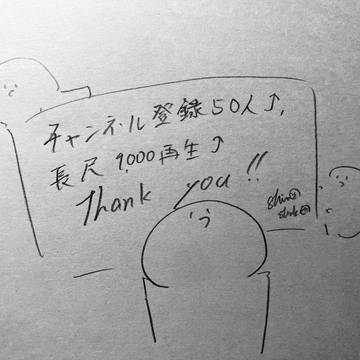 チャンネル登録50人↑,
長尺 9,000再生↑
Thank you!!